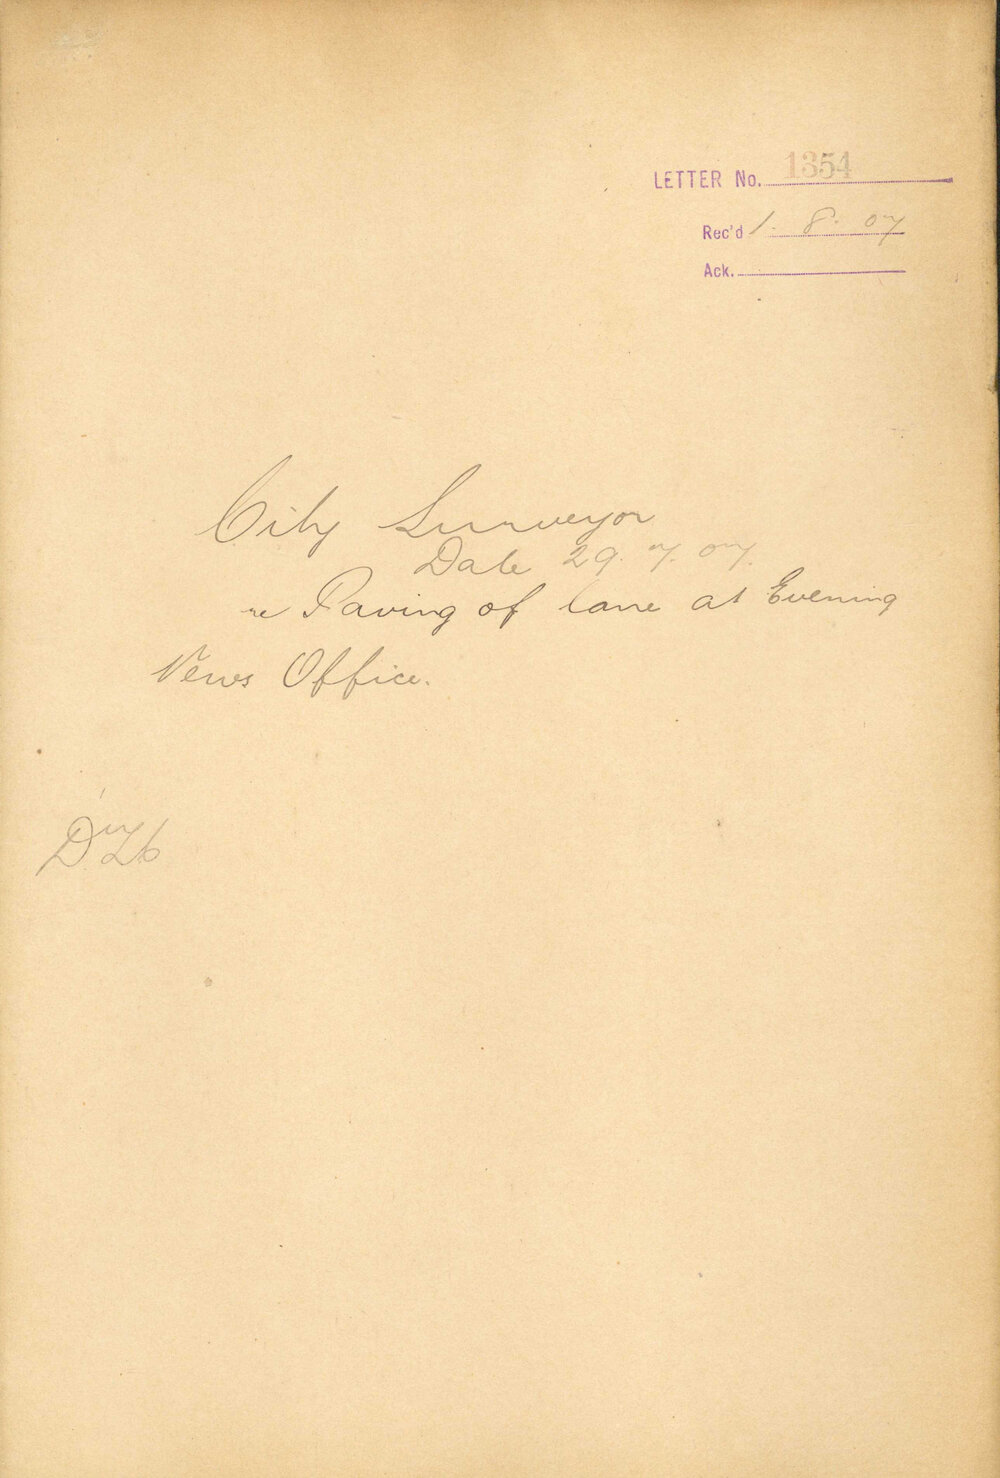 LETTER No. 1354
Rec'd 1. 8. 07
Ack.
City Surveyor
Date 29. 7. 07.
re Paving of lane at Evening
News Office.